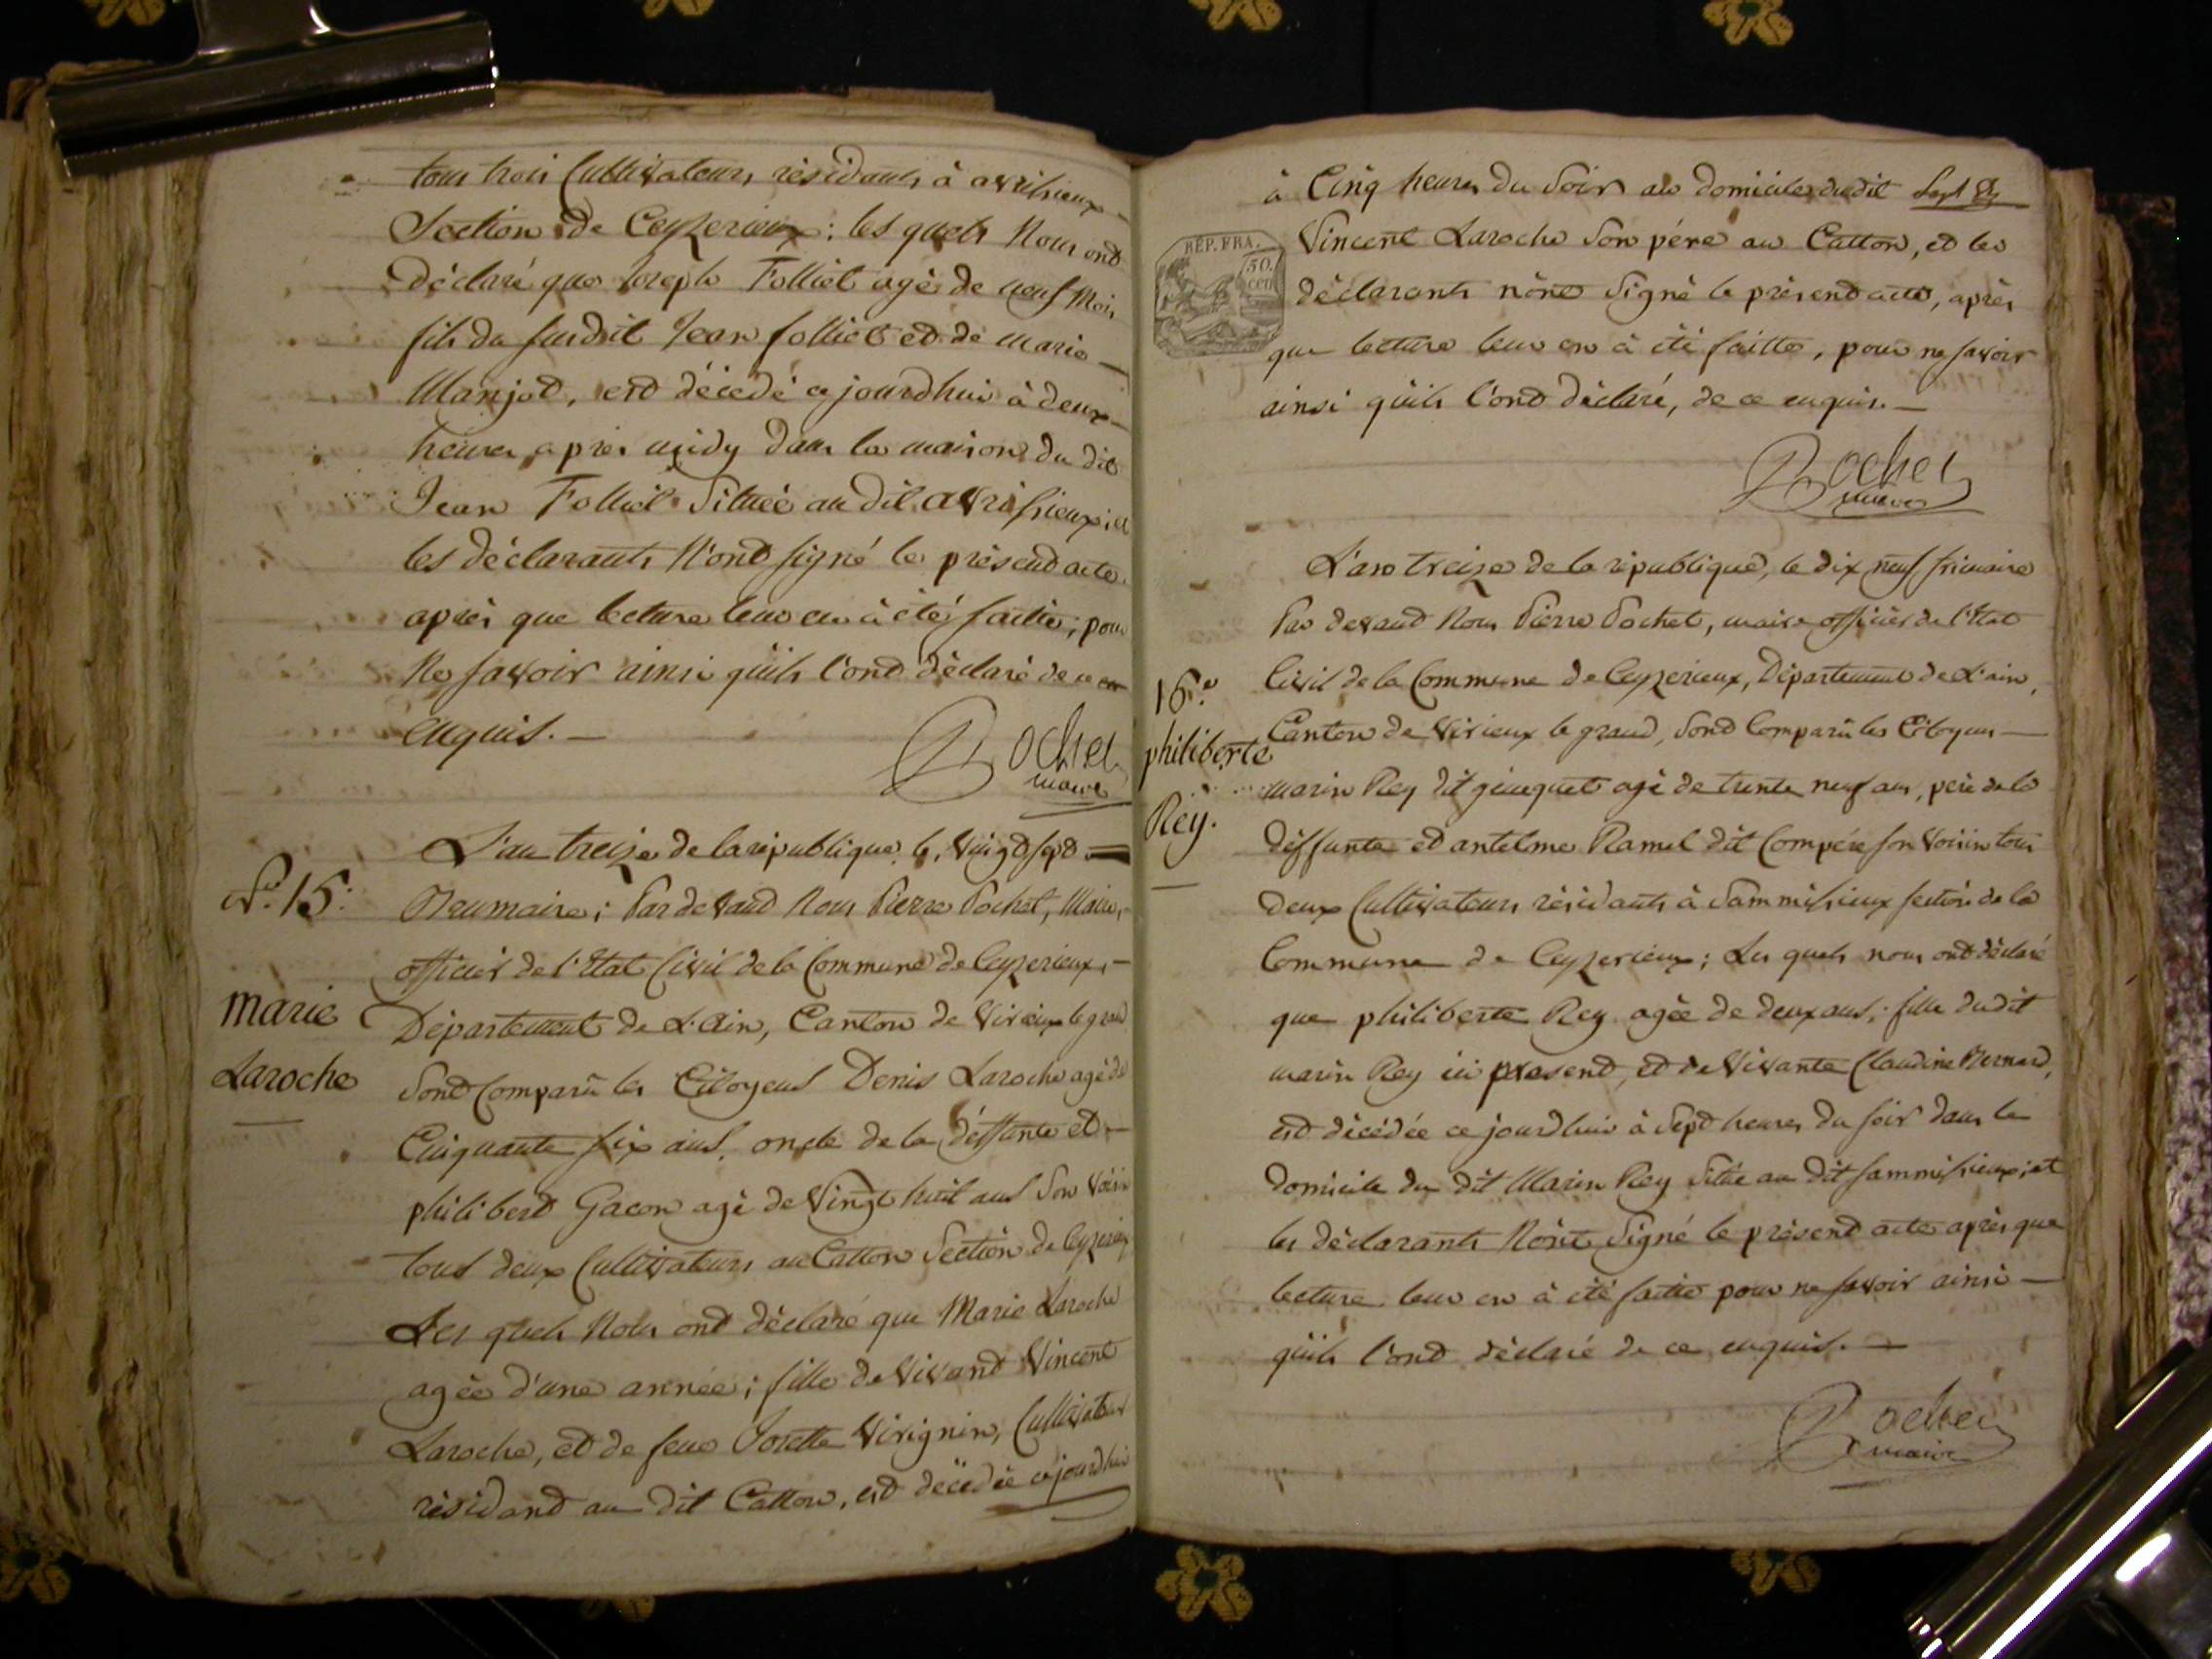 tous trois Cultivateurs résidants à avrisieux
Section de Ceyzerieux; les quels Nous ond
déclaré que Joseph Folliet agé de neuf Mois
fils du susdit Jean folliet ed de marie
Manjod, esd décedé cejourdhui à deux
heures apres midy dans la maison du dit
Jean Folliet Située au dit avrisieux; et
les déclarants N'ond signé le présend acte
aprés que lecture leur en à été faitte; pour
Ne savoir ainsi quils l'ond déclaré de ce en
enquis.
Pochet
maire
L'an treize de la république, le, vingd sepd
N.o 15.
Brumaire; Par devand Nous Pierre Pochet, Maire,
officier de l'Etat Civil de la Commune de Ceyzerieux,
marie
Département de L'Ain, Canton de Virieux le grand
Laroche
Sond Comparu les Citoyens Denis Laroche agé de
Cinquante six ans, oncle de la déffunte ed
philiberd Gacon agé de Vingt huit ans Son Voisin
tous deux Cultivateurs au Catton Section de Ceyzerieux
Les quels Nous ond déclaré que Marie Laroche
agée d'une année; fille de Vivand Vincent
Laroche, ed de feue Josette Virignin, Cultivateur
résidand au dit Catton, esd décedée cejourdhui
à Cinq heures du Soir au domicile dudit
Vincent Laroche Son pére au Catton, ed les
RÉP. FRA.
50.
cen
déclarants nónd Signé le présend acte, aprés
que lecture leur en à été faitte, pour ne savoir
ainsi quils l'ond déclaré, de ce enquis.
Pochet
maire
L'an treize de la république, le dix neuf frimaire
Par devand Nous Pierre Pochet, maire officier de l'Etat
16.e
Civil de la Commune de Ceyzerieux, Département de L'ain,
philiberte
Canton de Virieux le grand, Sond Comparu les Citoyens
marin Rey dit génequet agé de trente neuf ans, pere de la
Rey.
déffunte ed antelme Ramel dit Compére son Voisin tous
deux Cultivateurs résidants à Sammisieux section de la
Commune de Ceyzerieux; Les quels nous ond déclaré
que philiberte Rey agée de deux ans; fille dudit
marin Rey ici presend, ed de Vivante Claudine Bernard,
esd décédée ce jourdhui à Sepd heures du soir dans le
domicile du dit Marin Rey Situé au dit Sammisieux; et
les déclarants Nónt Signé le présend acte aprés que
lecture leur en à été faitte pour ne savoir ainsi
quils l'ond déclaré de ce enquis.
Pochet
maire